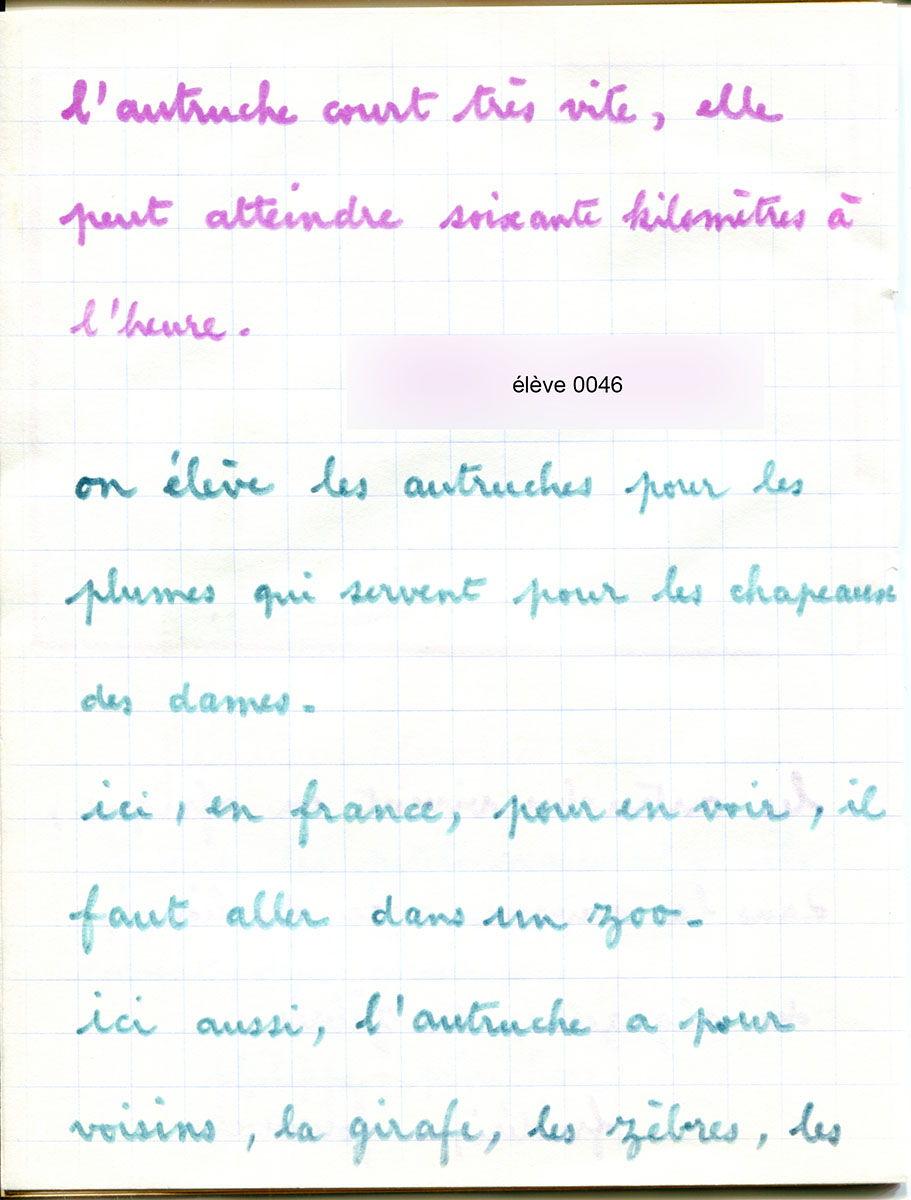 l'autruche court très vite, elle
peut atteindre soixante kilomètres à
l'heure.
élève 0046
on élève les autruches pour les
plumes qui servent pour les chapeaux
des dames.
ici, en france, pour en voir, il
faut aller dans un zoo.
ici aussi, l'autruche a pour
voisins, la girafe, les zèbres, les